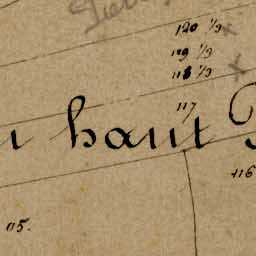 120 1/2
119 1/2
118 1/2
117
haut
116
115.